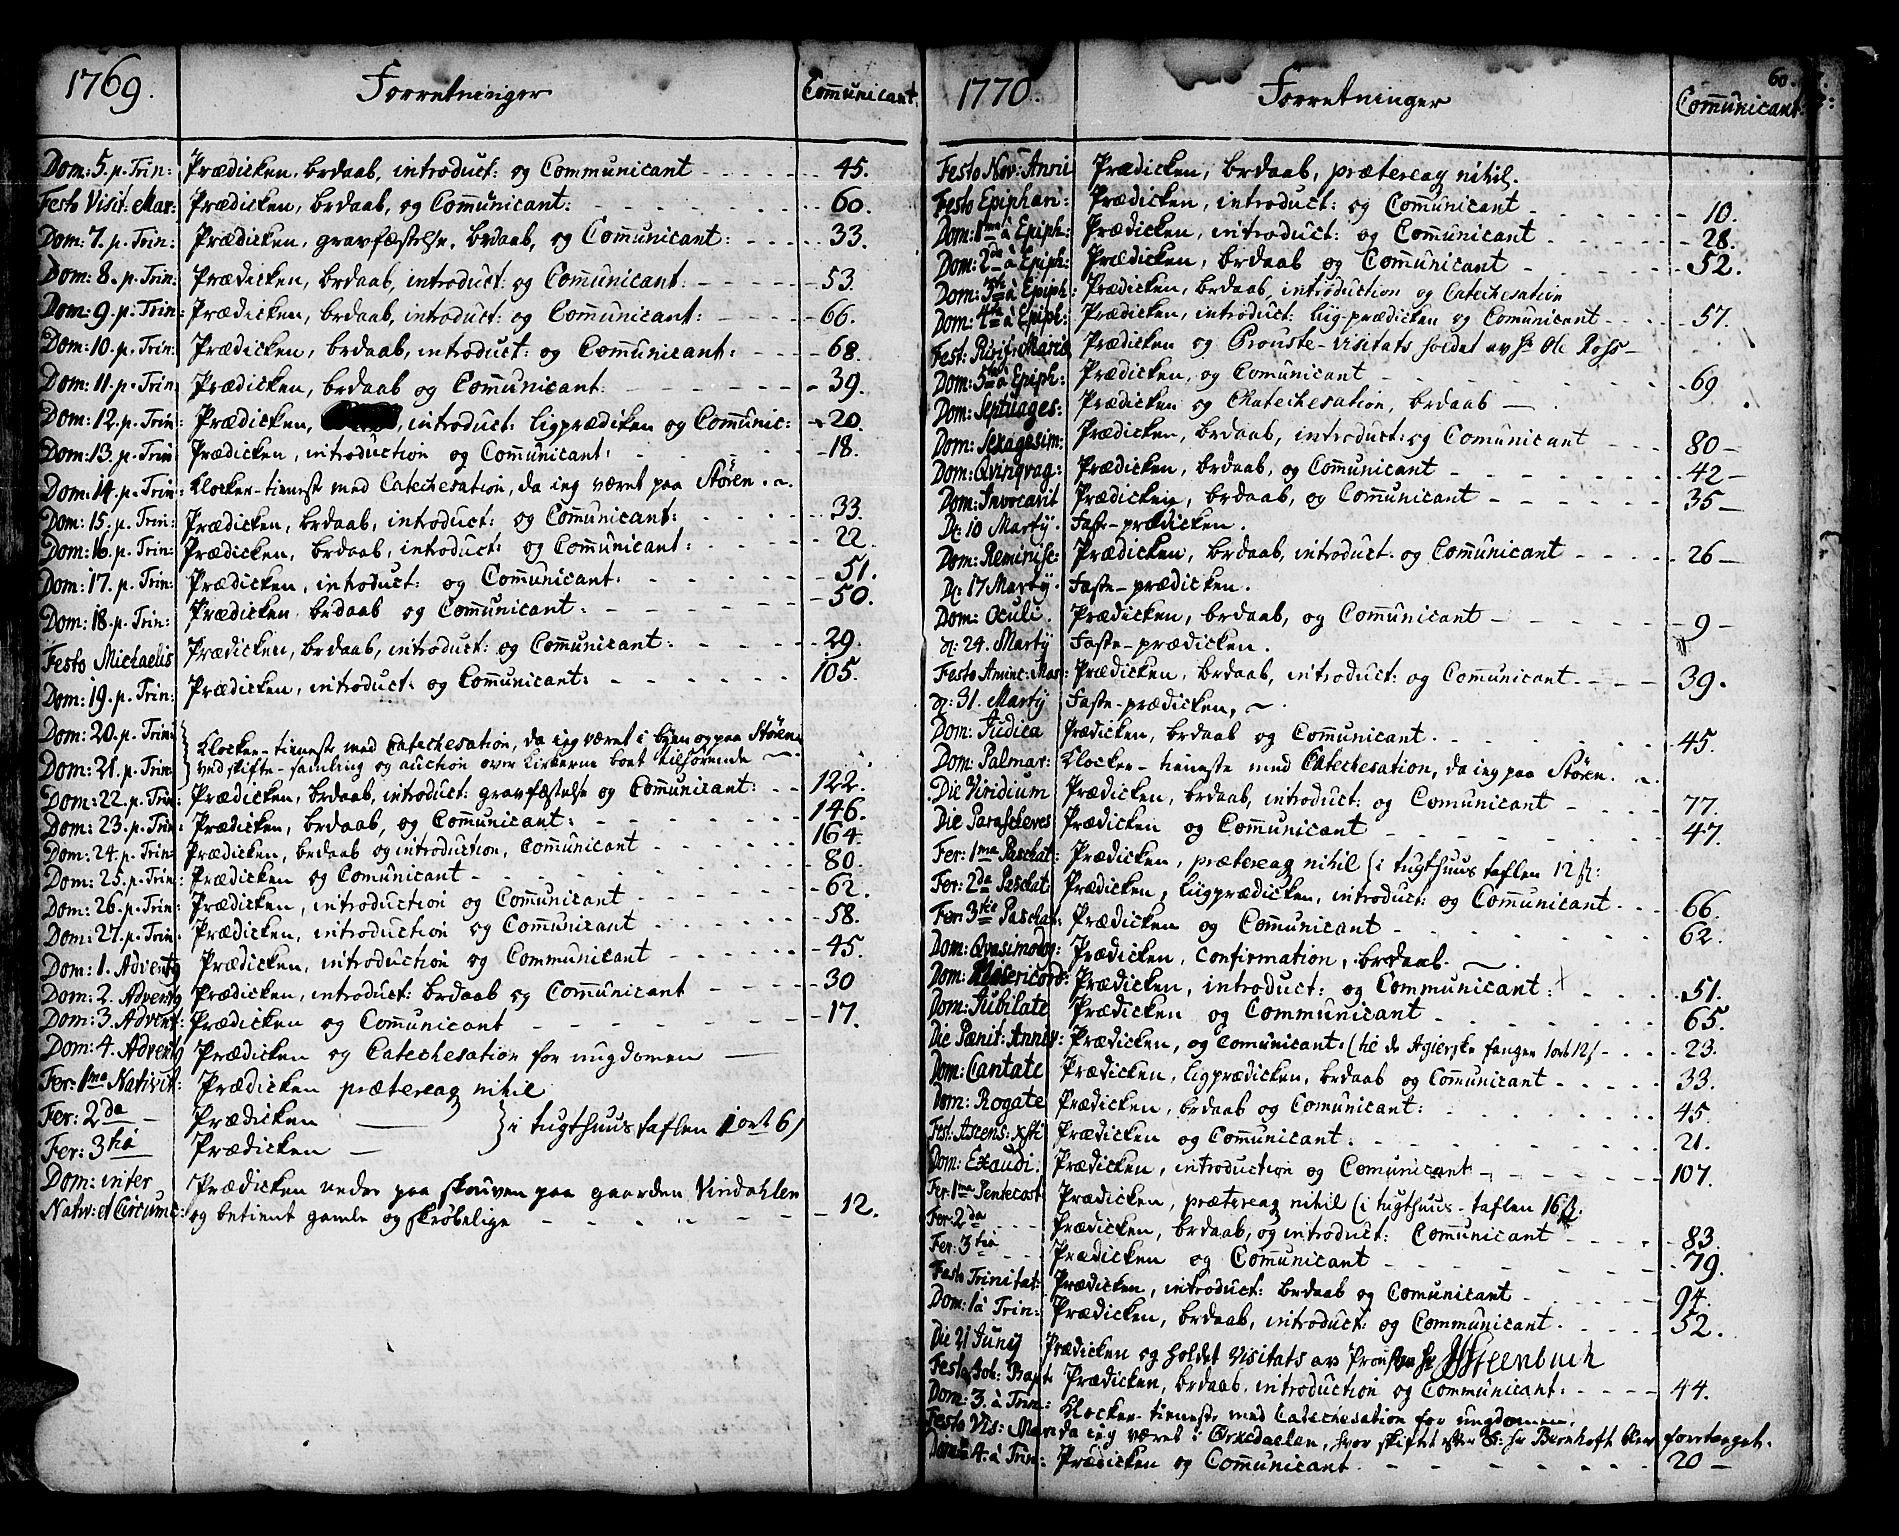 1769. Forretninger Com̄unicant.
Dom: 5. p. Trin: Prædicken, brdaab, introduct: og Communicant 45.
Festo Visit: Mar: Prædicken, brdaab, og Com̄unicant: 60.
Dom: 7. p. Trin: Prædicken, gravfæstelse, brdaab, og Com̄unicant: 33.
Dom: 8. p. Trin: Prædicken, brdaab, introduct: og Com̄unicant: 53.
Dom: 9. p. Trin: Prædicken, brdaab, introduct: og Com̄unicant: 66.
Dom: 10. p. Trin: Prædicken, brdaab, introduct: og Com̄unicant: 68.
Dom: 11. p. Trin: Prædicken, brdaab og Com̄unicant: 39.
Dom: 12. p. Trin: Prædicken, introduct: ligprædiken og Com̄unic: 20.
Dom: 13. p. Trin: Prædicken, introduction og Com̄unicant: 18.
Dom: 14. p. Trin: klocker-tieneste med Catechesation, da ieg været paa Stören.
Dom: 15. p. Trin: Prædicken, brdaab, introduct: og Com̄unicant: 33.
Dom: 16. p. Trin: Prædicken, brdaab, introduct: og Com̄unicant: 22.
Dom: 17. p. Trin: Prædicken, introduct: og Com̄unicant: 51.
Dom: 18. p. Trin: Prædicken, brdaab og Com̄unicant: 50.
Festo Michaelis Prædicken, brdaab, introduct: og Com̄unicant: 29.
Dom: 19. p. Trin: Prædicken, introduct: og Com̄unicant: 105.
Dom: 20. p. Trin: klocker-tieneste med Catechesation, da ieg været i byen og paa Stören
Dom: 21. p. Trin: ved skifte-samling og auction over kirkerne boet tilhörende
Dom: 22. p. Trin: Prædicken, brdaab, introduct: gravfæstelse og Com̄unicant: 122.
Dom: 23. p. Trin: Prædicken, brdaab, og Com̄unicant: 146.
Dom: 24. p. Trin: Prædicken, brdaab og introduction, Com̄unicant 164.
Dom: 25. p. Trin: Prædicken og Com̄unicant 80.
Dom: 26. p. Trin: Prædicken, introduction og Com̄unicant 62.
Dom: 27. p. Trin: Prædicken, introduction og Com̄unicant 58.
Dom: 1. Adventg Prædicken, introduction og Communicant 45.
Dom: 2. Adventg Prædicken, introduct: brdaab og Com̄unicant 30
Dom: 3. Advent: Prædicken og Com̄unicant 17.
Dom: 4. Adventg Prædicken og Catechesation for ungdomen
Fer: 1ma Nativit: Prædicken prætereaq nihil
Fer: 2da Prædicken
Fer: 3tia Prædicken } i tugthuus taflen 1 ort 6 ſ
Dom: inter Prædicken neder paa skouven paa gaarden Vindahlen
Nativ: et Circumc: og betient gamle og skröbelige 12.
60.
1770. Forretninger Com̄unicant:
Festo Nov: Anni Prædicken, brdaab, prætereaq nihil.
Festo Epiphan: Prædicken, introduct: og Com̄unicant 10.
Dom: 1ma à Epiph: Prædicken, introduct: og Com̄unicant 28.
Dom: 2da à Epiph: Prædicken, brdaab og Com̄unicant 52.
Dom: 3tia à Epiph: Prædicken, brdaab, introduction og Catechesation
Dom: 4ta à Epiph: Prædicken, introduct: liig-prædicken og Com̄unicant 57.
Fest: Purif: Mariæ Prædicken og Prouste-visitats holdet av hr Ole Ross
Dom: 5ta à Epiph: Prædicken, og Com̄unicant 69
Dom: Septuages: Prædicken og Catechesation, brdaab
Dom: Sexagesim: Prædicken, brdaab, introduct: og Com̄unicant 80
Dom: Qvinqvag: Prædicken, brdaab, og Com̄unicant 42
Dom: Invocavit Prædicken, brdaab, og Com̄unicant 35
D: 10 Martÿ. Faste-prædicken.
Dom: Reminisc: Prædicken, brdaab, introduct: og Com̄unicant 26
D: 17 Martÿ. Faste-prædicken.
Dom: Oculi. Prædicken, brdaab, og Com̄unicant 9
D: 24. Martÿ Faste-prædicken.
Festo Anunc: Mar: Prædicken, brdaab, introduct: og Com̄unicant 39.
D: 31. Martÿ Faste-prædicken,
Dom: Judica Prædicken, brdaab og Com̄unicant 45.
Dom: Palmar: klocker-tieneste med Catechesation, da ieg paa Stören.
Die Viridium Prædicken, brdaab, introduct: og Com̄unicant 77.
Die Parascheves Prædicken og Com̄unicant 47.
Fer: 1ma Paschat: Prædicken, prætereaq nihil (i tugthuus taflen 12 ſ:
Fer: 2da Paschat: Prædicken, liigprædicken, introduct: og Com̄unicant 66.
Fer: 3tia Paschat: Prædicken og Com̄unicant 62.
Dom: Qvasimodog: Prædicken, confirmation, brdaab.
Dom: Misericord: Prædicken, introduct: og Communicant: 51.
Dom: Jubilate Prædicken og Communicant 65.
Die Pænit: Anniv: Prædicken, og Com̄unicant. (til de Agierske fanger 1 ort 12 ſ 23.
Dom: Cantate Prædicken, ligprædicken, brdaab og Com̄unicant 33.
Dom: Rogate Prædicken, brdaab og Com̄unicant: 45.
Fest: Ascens: xsti Prædicken og Com̄unicant: 21.
Dom: Exaudi. Prædicken, introduction og Com̄unicant 107.
Fer: 1ma Pentecost: Prædicken, prætereaq nihil (i tugthuus-taflen 16 ſ:
Fer: 2da Prædicken, brdaab, og introduct: Com̄unicant 83.
Fer: 3tia Prædicken og Com̄unicant 79.
Festo Trinitat: Prædicken, introduct: brdaab og Com̄unicant 94.
Dom: 1 à Trin: Prædicken, brdaab, introduct: og Communicant. 52.
Die 21 Junÿ Prædicken og holdet Visitats av Prousten hr Steenbuch
Festo Joh: Bapt: Prædicken, brdaab, introduction og Communicant: 44.
Dom: 3. à Trin: klocker-tieneste med Catechesation for ungdomen,
Festo Vis: Mar: da ieg været i Örkedaelen, hvor skiftet efter S: hr Bernhoft blev foretaget.
Dom: 4. à Trin: Prædicken og Com̄unicant 20